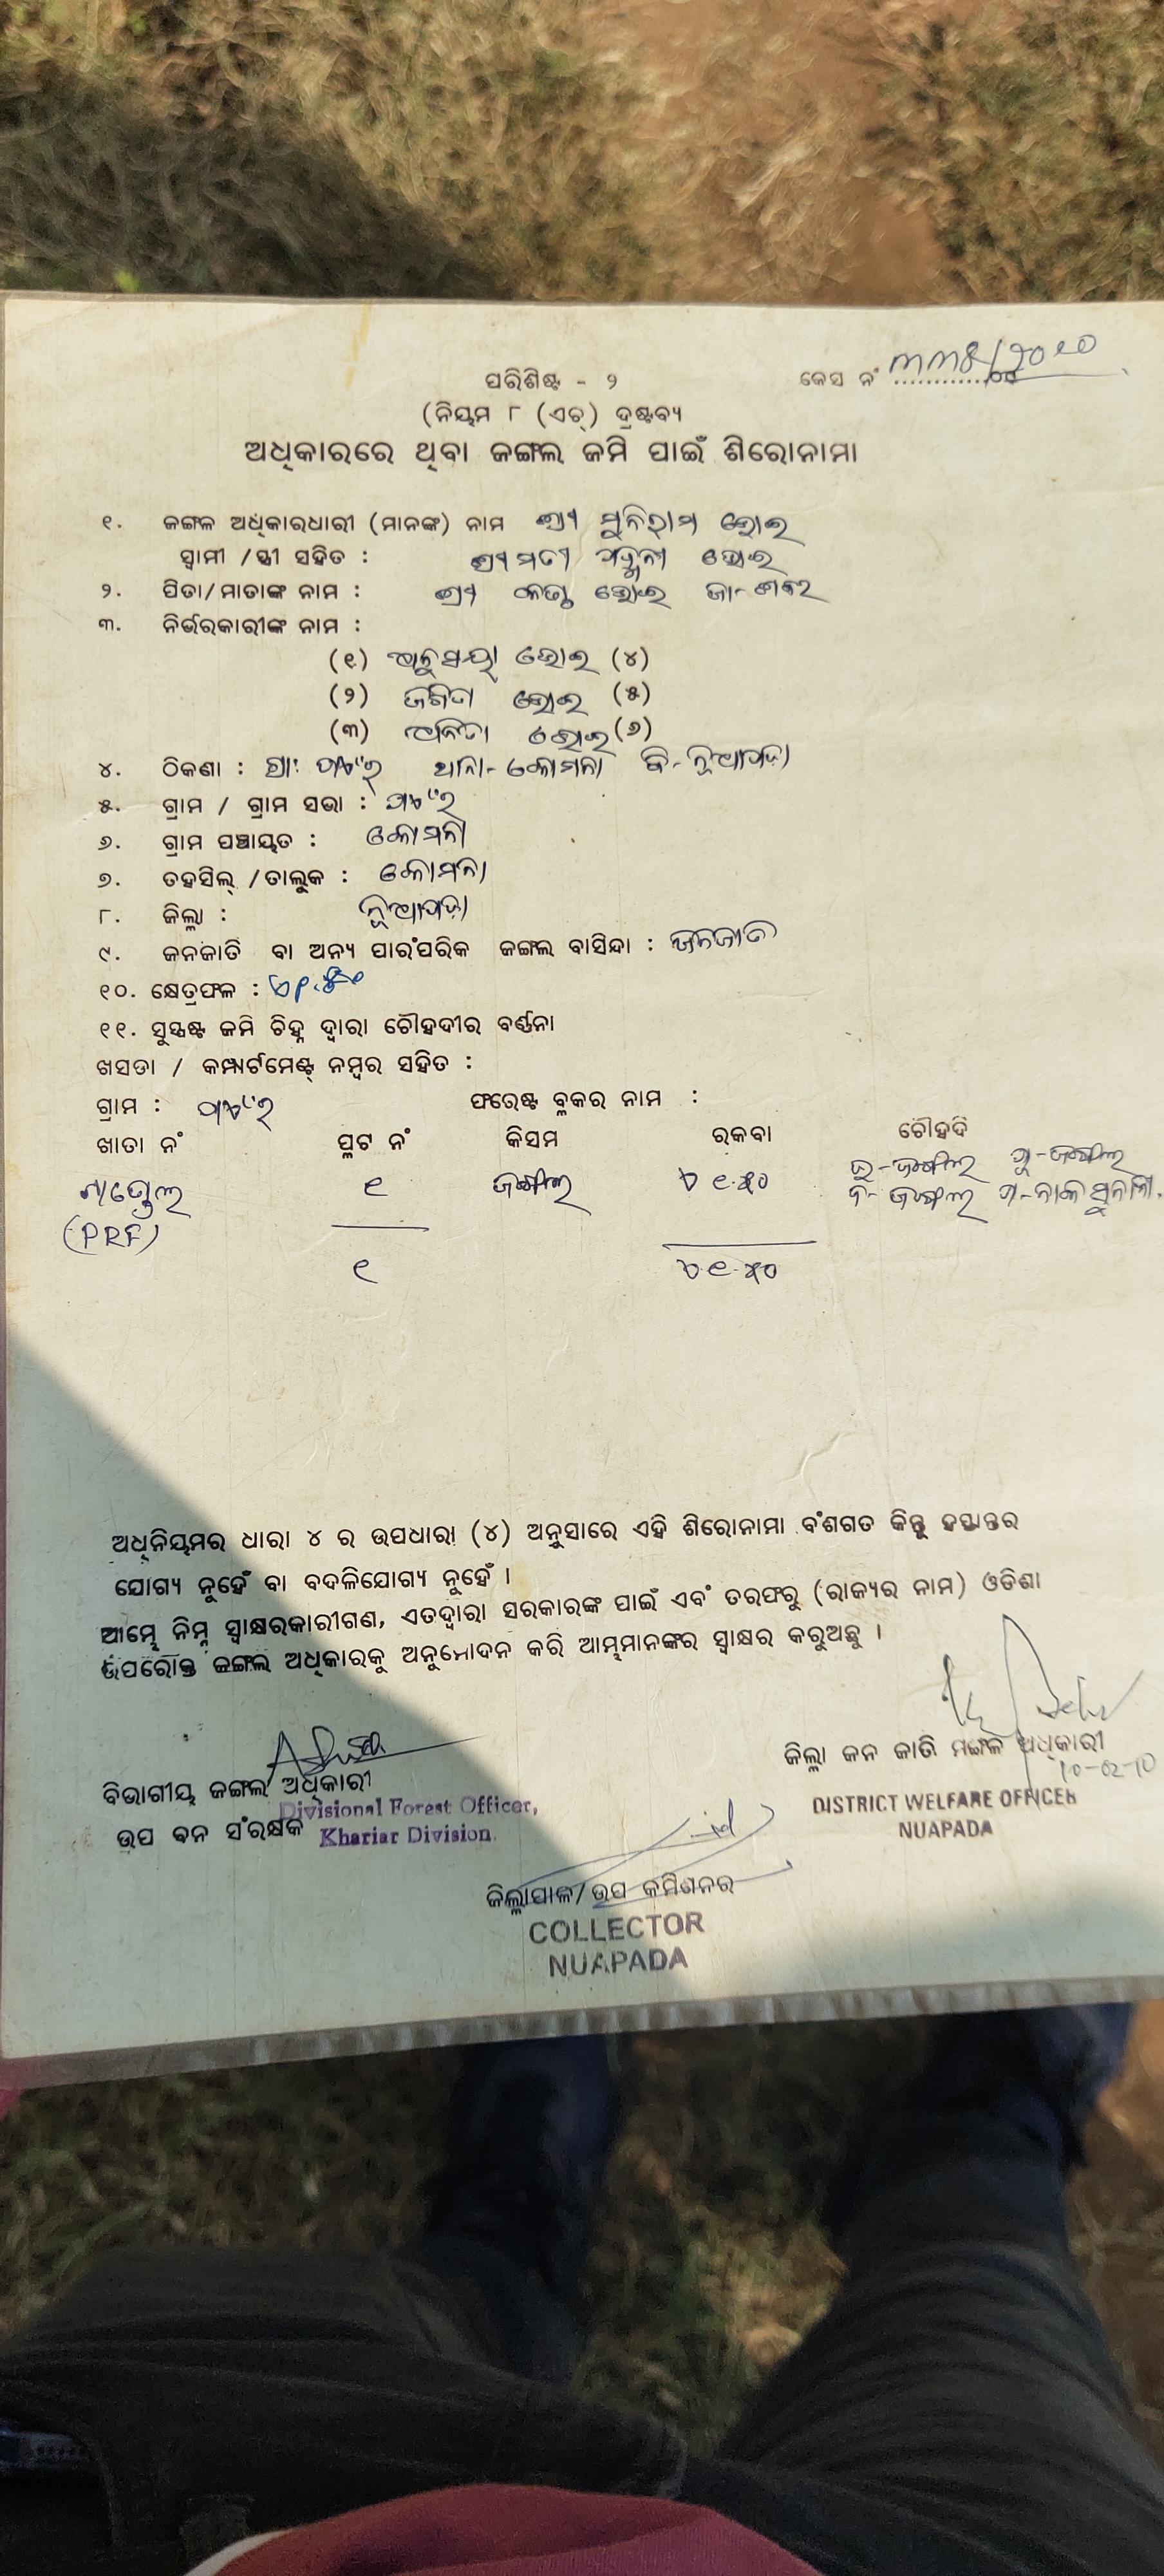 ପରିଶିଷ୍ଟ - ୨
କେସ ନଂ ୩୩୫/୨୦୧୦
(ନିୟମ ୮ (ଏଚ୍) ଦ୍ରଷ୍ଟବ୍ୟ
ଅଧିକାରରେ ଥିବା ଜଙ୍ଗଲ ଜମି ପାଇଁ ଶିରୋନାମା
୧. ଜଙ୍ଗଲ ଅଧିକାରଧାରୀ (ମାନଙ୍କ) ନାମ ଶ୍ରୀ ମୁନିରାମ ଭୋଇ
ସ୍ବାମୀ / ସ୍ତ୍ରୀ ସହିତ : ଶ୍ରୀମତୀ ଭୋଇ
୨. ପିତା/ମାତାଙ୍କ ନାମ : ଶ୍ରୀ ଭୋଇ ଜା-ଶବର
୩. ନିର୍ଭରକାରୀଙ୍କ ନାମ :
(୧) ଅନୁସୟା ଭୋଇ (୪)
(୨) ଭୋଇ (୫)
(୩) ଭୋଇ (୬)
୪. ଠିକଣା : ଗ୍ରା: ଥାନା- କୋମନା ଜି-ନୂଆପଡା
୫. ଗ୍ରାମ / ଗ୍ରାମ ସଭା :
୬. ଗ୍ରାମ ପଞ୍ଚାୟତ : କୋମନା
୭. ତହସିଲ୍ /ତାଲୁକ : କୋମନା
୮. ଜିଲ୍ଲା : ନୂଆପଡା
୯. ଜନଜାତି ବା ଅନ୍ୟ ପାରଂପରିକ ଜଙ୍ଗଲ ବାସିନ୍ଦା : ଜନଜାତି
୧୦. କ୍ଷେତ୍ରଫଳ :
୧୧. ସୁସ୍ପଷ୍ଟ ଜମି ଚିହ୍ନ ଦ୍ୱାରା ଚୌହଦୀର ବର୍ଣ୍ଣନା
ଖସଡା / କମ୍ପାର୍ଟମେଣ୍ଟ୍ ନମ୍ବର ସହିତ :
ଗ୍ରାମ : ଫରେଷ୍ଟ ବ୍ଲକର ନାମ :
ଖାତା ନଂ ପ୍ଳଟ ନଂ କିସମ ରକବା ଚୌହଦି
୧ ଜଙ୍ଗଲ ଉ-ଜଙ୍ଗଲ ପୂ-ଜଙ୍ଗଲ
(PRF) ଦ-ଜଙ୍ଗଲ
୧
ଅଧିନିୟମର ଧାରା ୪ ର ଉପଧାରା (୪) ଅନୁସାରେ ଏହି ଶିରୋନାମା ବଂଶଗତ କିନ୍ତୁ ହସ୍ତାନ୍ତର
ଯୋଗ୍ୟ ନୁହେଁ ବା ବଦଳିଯୋଗ୍ୟ ନୁହେଁ ।
ଆମ୍ଭେ ନିମ୍ନ ସ୍ୱାକ୍ଷରକାରୀଗଣ, ଏତଦ୍ୱାରା ସରକାରଙ୍କ ପାଇଁ ଏବଂ ତରଫରୁ (ରାଜ୍ୟର ନାମ) ଓଡିଶା
ଉପରୋକ୍ତ ଜଙ୍ଗଲ ଅଧିକାରକୁ ଅନୁମୋଦନ କରି ଆମ୍ଭମାନଙ୍କର ସ୍ୱାକ୍ଷର କରୁଅଛୁ ।
ଜିଲ୍ଲା ଜନ ଜାତି ମଙ୍ଗଳ ଅଧିକାରୀ
10-02-10
DISTRICT WELFARE OFFICER
NUAPADA
ବିଭାଗୀୟ ଜଙ୍ଗଲ ଅଧିକାରୀ
Divisional Forest Officer,
ଉପ ବନ ସଂରକ୍ଷକ Khariar Division.
ଜିଲ୍ଲାପାଳ/ଉପ କମିଶନର
COLLECTOR
NUAPADA